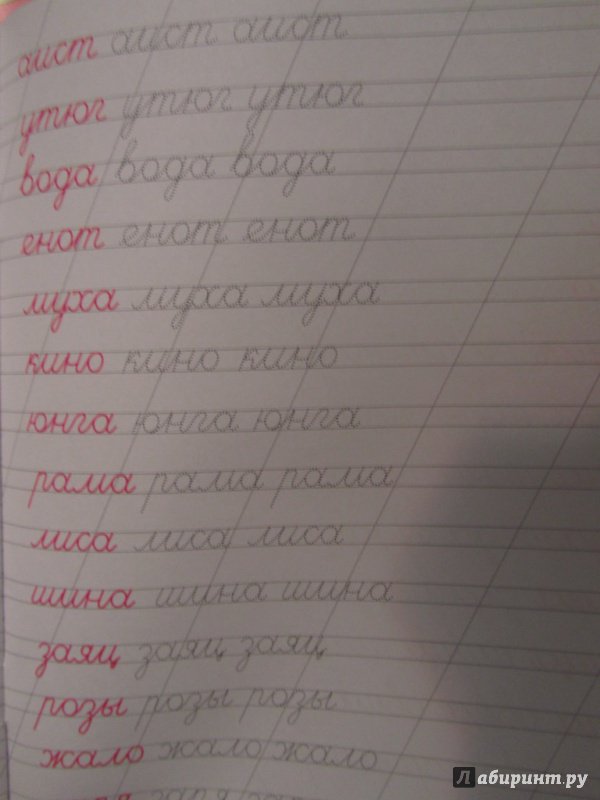 аист аист аист
утюг утюг утюг
вода вода вода
енот енот енот
муха муха муха
кино кино кино
юнга юнга юнга
рама рама рама
лиса лиса лиса
шина шина шина
заяц заяц заяц
розы розы розы
жало жало жало
заря
Лабиринт.ру